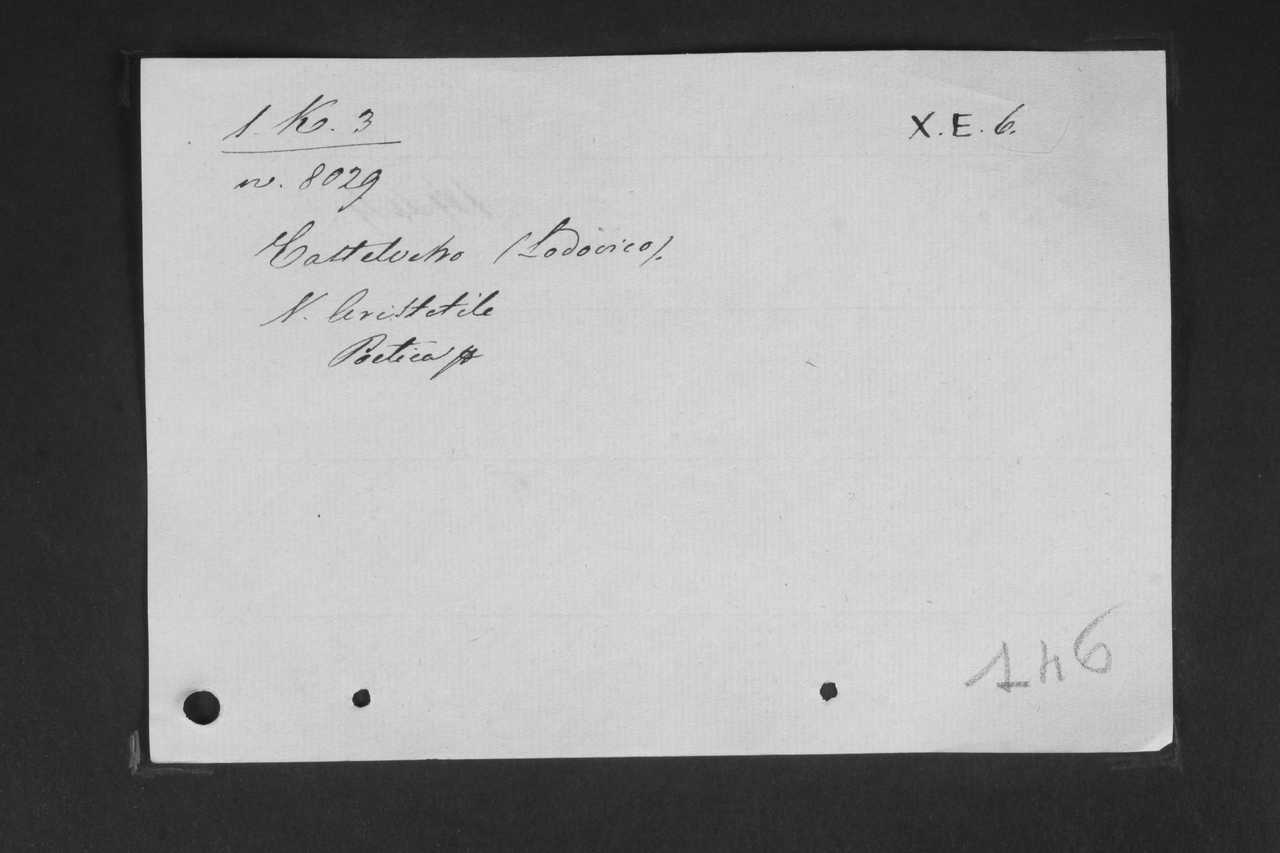 1. K. 3
X. E. 6.
n. 8029
Castelvetro (Lodovico).
V. Aristotile
Poetica
146